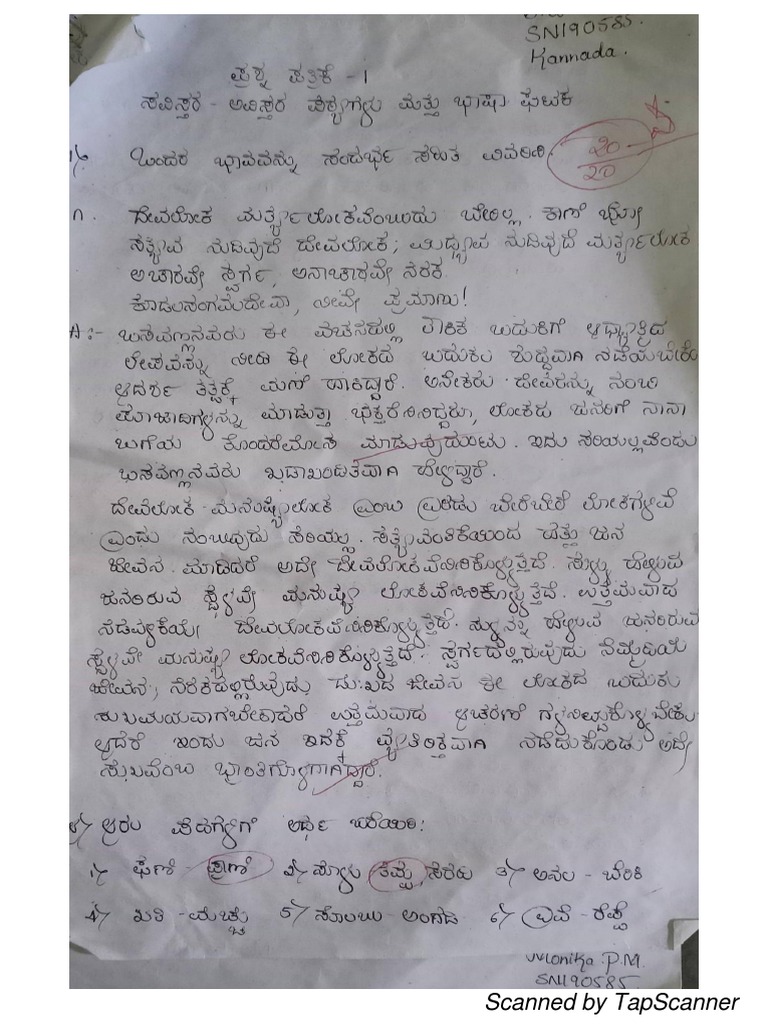 SN190585.
Kannada.
ಪ್ರಶ್ನ ಪತ್ರಿಕೆ - 1
ಸವಿಸ್ತರ - ಅವಿಸ್ತರ ಪಠ್ಯಗಳು ಮತ್ತು ಭಾಷಾ ಘಟಕ
20
20
ಒಂದರ ಭಾವವನ್ನು ಸಂದರ್ಭ ಸಹಿತ ವಿವರಿಸಿ.
೧. ದೇವಲೋಕ ಮರ್ತ್ಯಲೋಕವೆಂಬುದು ಬೇರಿಲ್ಲ ಕಾಣಿ ಭೋ
ಸತ್ಯವ ನುಡಿವುದೆ ದೇವಲೋಕ; ಮಿಥ್ಯವ ನುಡಿವುದೆ ಮರ್ತ್ಯಲೋಕ
ಆಚಾರವೇ ಸ್ವರ್ಗ, ಅನಾಚಾರವೇ ನರಕ
ಕೂಡಲಸಂಗಮದೇವಾ, ನೀವೇ ಪ್ರಮಾಣು!
A:- ಬಸವಣ್ಣನವರು ಈ ವಚನದಲ್ಲಿ ಬದುಕಿಗೆ
ಲೇಪವನ್ನು ನೀಡಿ ಈ ಲೋಕದ ಬದುಕು ಶುದ್ಧವಾಗಿ ನಡೆಯಬೇಕೆಂಬ
ಆದರ್ಶ ತತ್ವಕ್ಕೆ ಮಣೆ ಹಾಕಿದ್ದಾರೆ. ಅನೇಕರು ದೇವರನ್ನು ನಂಬಿ
ಪೂಜಾದಿಗಳನ್ನು ಮಾಡುತ್ತಾ ಲೋಕದ ಜನರಿಗೆ ನಾನಾ
ಬಗೆಯ ಮಾಡುವುದುಂಟು. ಇದು ಸರಿಯಲ್ಲವೆಂದು
ಬಸವಣ್ಣನವರು ಖಡಾಖಂಡಿತವಾಗಿ ಹೇಳಿದ್ದಾರೆ.
ದೇವಲೋಕ - ಮನುಷ್ಯಲೋಕ ಎಂಬ ಎರಡು ಬೇರೆಬೇರೆ ಲೋಕಗಳಿವೆ
ಎಂದು ನಂಬುವುದು ಸರಿಯಲ್ಲ. ಸತ್ಯವಂತಿಕೆಯಿಂದ ಜನ
ಜೀವನ ಮಾಡಿದರೆ ಅದೇ ದೇವಲೋಕವೆನಿಸಿಕೊಳ್ಳುತ್ತದೆ. ಸುಳ್ಳು ಹೇಳುವ
ಜನರಿರುವ ಸ್ಥಳವೇ ಮನುಷ್ಯ ಲೋಕವೆನಿಸಿಕೊಳ್ಳುತ್ತದೆ. ಉತ್ತಮವಾದ
ನಡವಳಿಕೆಯೇ ದೇವಲೋಕವೆನಿಸಿಕೊಳ್ಳುತ್ತದೆ. ಹೇಳುವ ಜನರಿರುವ
ಸ್ಥಳವೇ ಮನುಷ್ಯ ಲೋಕವೆನಿಸಿಕೊಳ್ಳುತ್ತದೆ. ಸ್ವರ್ಗದಲ್ಲಿರುವುದು ನೆಮ್ಮದಿಯ
ಜೀವನ, ನರಕದಲ್ಲಿರುವುದು ದುಃಖದ ಜೀವನ ಈ ಲೋಕದ ಬದುಕು
ಸುಖಮಯವಾಗಬೇಕಾದರೆ ಉತ್ತಮವಾದ ಆಚರಣೆ
ಆದರೆ ಇಂದು ಜನ ಇದಕ್ಕೆ ವ್ಯತಿರಿಕ್ತವಾಗಿ ನಡೆದುಕೊಂಡು ಅದೇ
ಸುಖವೆಂಬ
ಆರು ಪದಗಳಿಗೆ ಅರ್ಥ ಬರೆಯಿರಿ:
೧) ಘಾಣಿ - ಪ್ರಾಣಿ ೨) ತಪ್ಪು, ಸೆರಳು ೩) ಅನಲ - ಬೆಂಕಿ
4) ಖತಿ - ಮಚ್ಚು 5) ಸೊಲಬು - ಅಂಗಡಿ ೬) ಎವೆ - ರೆಪ್ಪೆ
Monika P.M.
SN190585
Scanned by TapScanner